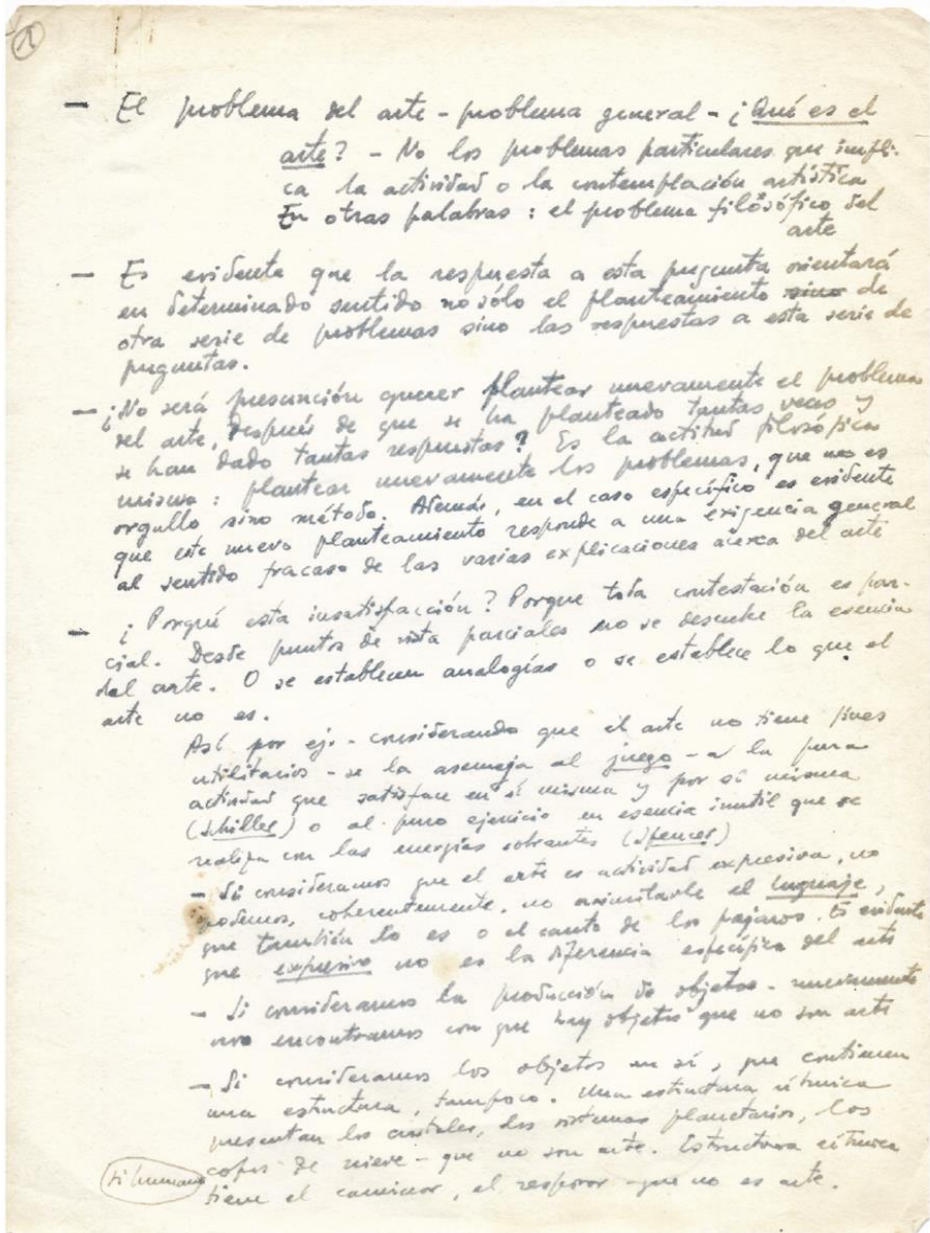 1
— El problema del arte - problema general - ¿Qué es el
arte? - No los problemas particulares que impli-
ca la actividad o la contemplación artística
En otras palabras: el problema filosófico del
arte
— Es evidente que la respuesta a esta pregunta orientará
en determinado sentido no sólo el planteamiento sino de
otra serie de problemas sino las respuestas a esta serie de
preguntas.
— ¿No será presunción querer plantear nuevamente el problema
del arte, después de que se ha planteado tantas veces y
se han dado tantas respuestas? Es la actitud filosófica
misma: plantear nuevamente los problemas, que no es
orgullo sino método. Además, en el caso específico es evidente
que este nuevo planteamiento responde a una exigencia general
al sentido fracaso de las varias explicaciones acerca del arte
— ¿Porqué esta insatisfacción? Porque toda contestación es par-
cial. Desde puntos de vista parciales no se descubre la esencia
del arte. O se establecen analogías o se establece lo que el
arte no es.
Así por ej. - considerando que el arte no tiene fines
utilitarios - se la asemeja al juego - a la pura
actividad que satisface en sí misma y por sí misma
(Schiller) o al puro ejercicio en esencia inutil que se
realiza con las energías sobrantes (Spencer)
— Si consideramos que el arte es actividad expresiva, no
podemos, coherentemente, no asimilarle el lenguaje,
que también lo es o el canto de los pájaros. Es evidente
que expresivo no es la diferencia específica del arte
— Si consideramos la producción de objetos - nuevamente
nos encontramos con que hay objetos que no son arte
— Si consideramos los objetos en sí, que contienen
una estructura, tampoco. Una estructura rítmica
presentan los cristales, los sistemas planetarios, los
copos de nieve - que no son arte. Estructura rítmica
tiene el caminar, el respirar - que no es arte.
humano